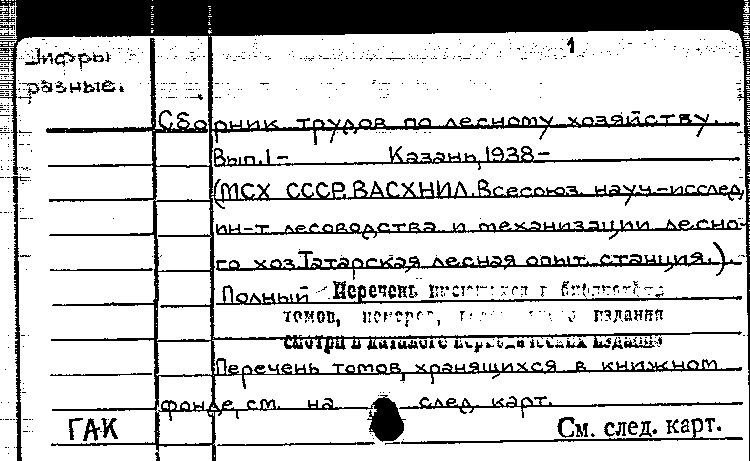 1
Шифры
разные.
Сборник трудов по лесному хозяйству.
Вып.1- Казань, 1938-
(МСХ СССР. ВАСХНИЛ. Всесоюз. науч-исслед.
ин-т лесоводства и механизации лесно-
го хоз. Татарская лесная опыт. станция.).
Полный Перечень имеющихся в библиотеке
томов, номеров, издания
смотри в каталоге периодических изданий
Перечень томов, хранящихся в книжном
фонде, см. на след. карт.
ГАК См. след. карт.